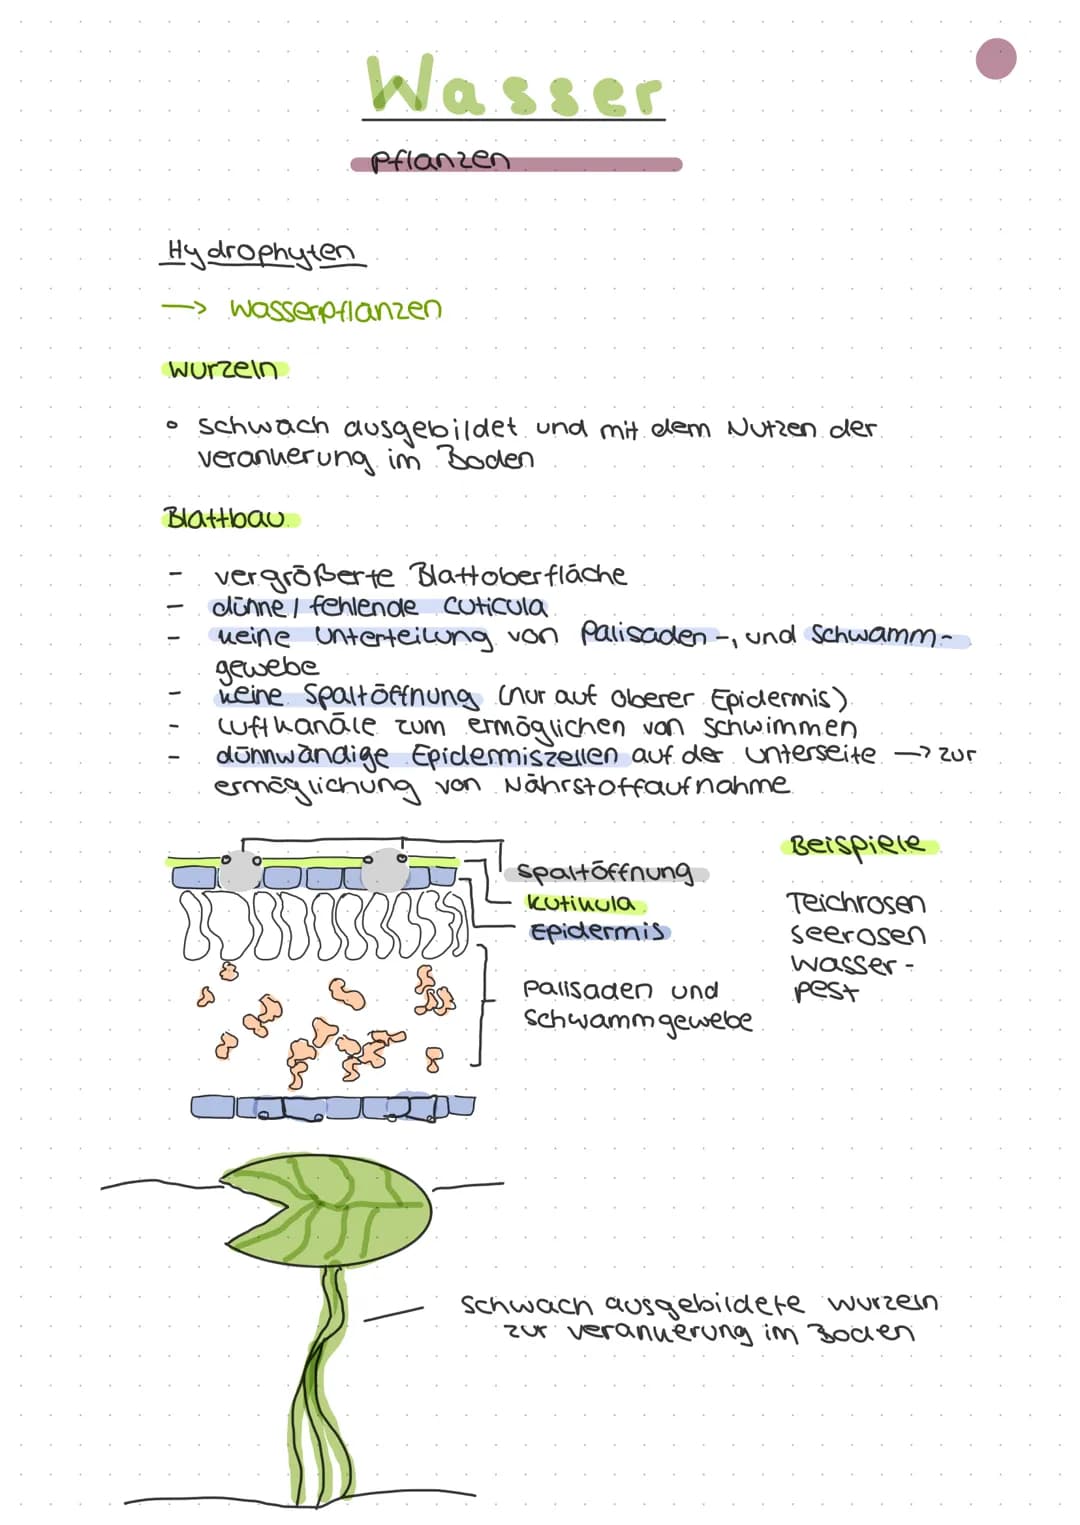 Wasser
Pflanzen
Hydrophyten
→ Wasserpflanzen
Wurzeln
• schwach ausgebildet und mit dem Nutzen der
Verankerung im Boden
Blattbau
- vergrößerte Blattoberfläche
- dünne / fehlende Cuticula
- keine Unterteilung von Palisaden-, und Schwamm-
gewebe
- keine Spaltöffnung (nur auf oberer Epidermis)
- Luftkanäle zum ermöglichen von Schwimmen
- dünnwändige Epidermiszellen auf der Unterseite → zur
ermöglichung von Nährstoffaufnahme
Spaltöffnung
Kutikula
Epidermis
Palisaden und
Schwammgewebe
Beispiele
Teichrosen
Seerosen
Wasser-
pest
schwach ausgebildete Wurzeln
zur Verankerung im Boden